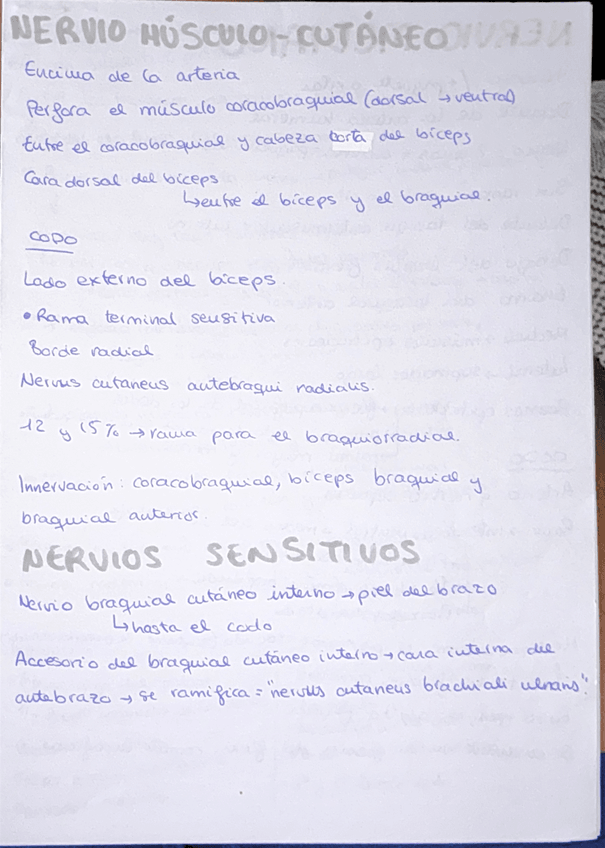 NERVIO MÚSCULO-CUTÁNEO
Encima de la arteria
Perfora el músculo coracobraquial (dorsal → ventral)
Entre el coracobraquial y cabeza corta del bíceps
Cara dorsal del bíceps
↳ entre el bíceps y el braquial.
CODO
Lado externo del bíceps.
• Rama terminal sensitiva
Borde radial
Nervus cutaneus antebraqui radialis.
12 y 15% → rama para el braquiorradial.
Innervación: coracobraquial, bíceps braquial y
braquial anterior.
NERVIOS SENSITIVOS
Nervio braquial cutáneo interno → piel del brazo
↳ hasta el codo
Accesorio del braquial cutáneo interno → cara interna del
antebrazo → se ramifica = "nervus cutaneus brachiali ulnaris".